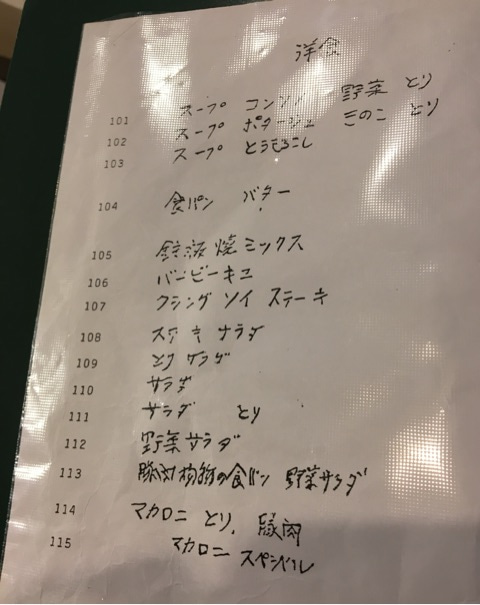 洋食
101 スープ コンソメ 野菜 とり
102 スープ ポタージュ きのこ とり
103 スープ とうもろこし
104 食パン バター
105 鉄板焼ミックス
106 バービーキュ
107 クシング ソイ ステーキ
108 ステーキ サラダ
109 とり サラダ
110 サラダ
111 サラダ とり
112 野菜サラダ
113 豚肉 の食パン 野菜サラダ
114 マカロニ とり、豚肉
115 マカロニ スペシベル